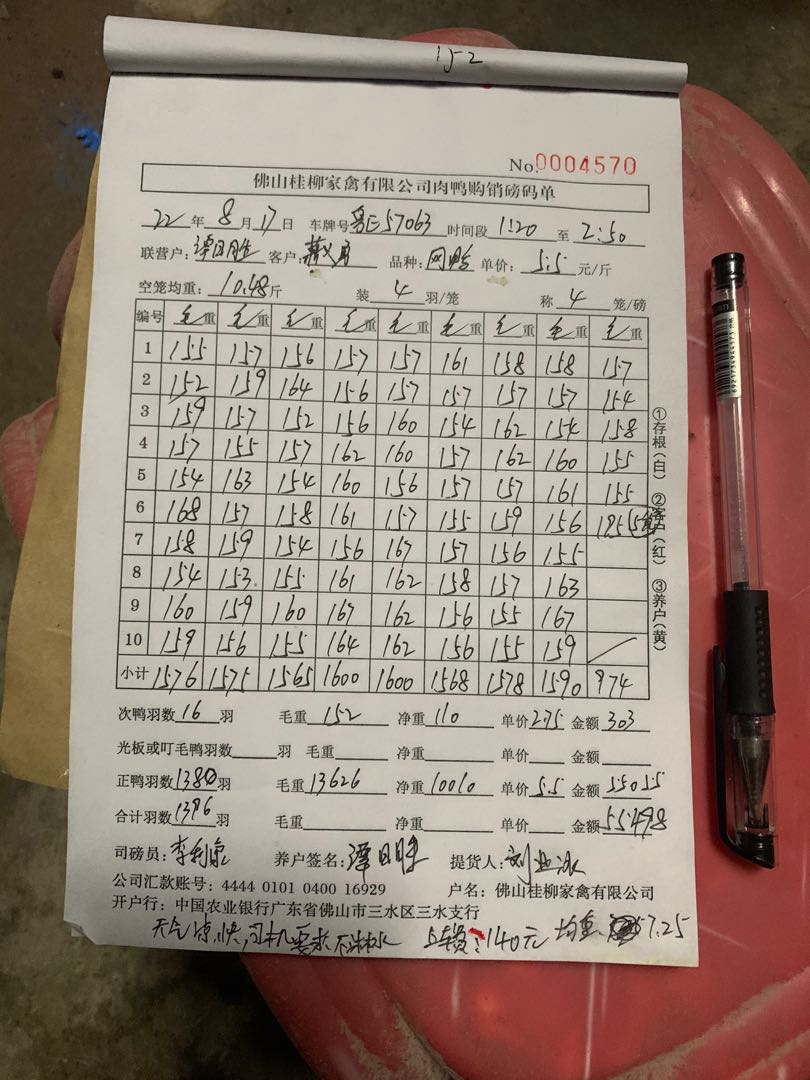 152
No.0004570
佛山桂柳家禽有限公司肉鸭购销磅码单
22年8月17日 车牌号粤E57063时间段1:20至2:50
联营户:谭日胜 客户: 品种:网鸭 单价:5.5元/斤
空笼均重:10.48斤 装4羽/笼 称4笼/磅
编号 毛重 毛重 毛重 毛重 毛重 毛重 毛重 毛重 毛重
1 155 157 156 157 157 161 158 158 157
2 152 159 164 156 157 157 157 157 154
3 159 157 152 156 160 154 162 154 158
4 157 155 157 162 160 157 162 160 155
5 154 163 154 160 156 157 157 161 155
6 168 157 158 161 157 155 159 156 195
7 158 159 154 156 167 157 156 155
8 154 153 155 161 162 158 157 163
9 160 159 160 167 162 156 155 167
10 159 156 155 164 162 156 155 159
小计 1576 1575 1565 1600 1600 1568 1578 1590 974
次鸭羽数16羽 毛重152 净重110 单价2.75 金额303
光板或叮毛鸭羽数羽 毛重 净重 单价 金额
正鸭羽数1380羽 毛重13626 净重10010 单价5.5 金额55055
合计羽数1396羽 毛重 净重 单价 金额55498
司磅员:李利泉 养户签名:谭日胜 提货人:刘业冰
公司汇款账号:4444 0101 0400 16929 户名:佛山桂柳家禽有限公司
开户行:中国农业银行广东省佛山市三水区三水支行
天气凉快,司机要求不淋水 上车费:140元 均重 7.25
①存根(白) ②客户(红) ③养户(黄)
6921734944573